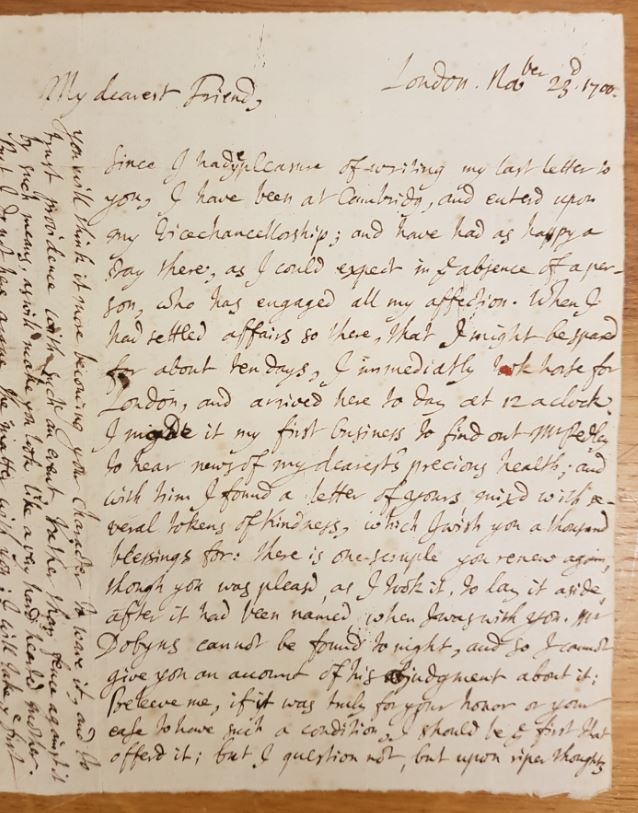 London. Nov^ber 23^d 1700.
My dearest Friend,
Since I had y^e pleasure of writing my last letter to
you, I have been at Cambridg, and enterd upon
my Vicechancellorship; and have had as happy a
Day there, as I could expect in y^e absence of a per-
son, who has engaged all my affection. When I
had settled affairs so there, that I might be spared
for about ten days, I immediatly took horse for
London, and arrived here to day at 12 a clock.
I made it my first business to find out M^r Pedley
to hear news of my dearest's precious health; and
with him I found a letter of yours mixd with se-
veral tokens of Kindness, which I wish you a thousand
blessings for: there is one scruple you renew again,
though you was pleasd, as I took it, to lay it aside,
after it had been named, when I was with you. M^r
Dobyns cannot be found to night, and so I cannot
give you an account of his judgment about it;
Beleeve me, if it was truly for your honor or your
ease to have such a condition, I should be y^e first that
offerd it; but I question not, but upon riper thoughts
you will think it more becoming your Character to wave it, and to
trust providence with such an event, rather than fence against it
by such means, as will make you look like a very hard hearted mother.
But I do not here argue the matter with you; I will take y^e first